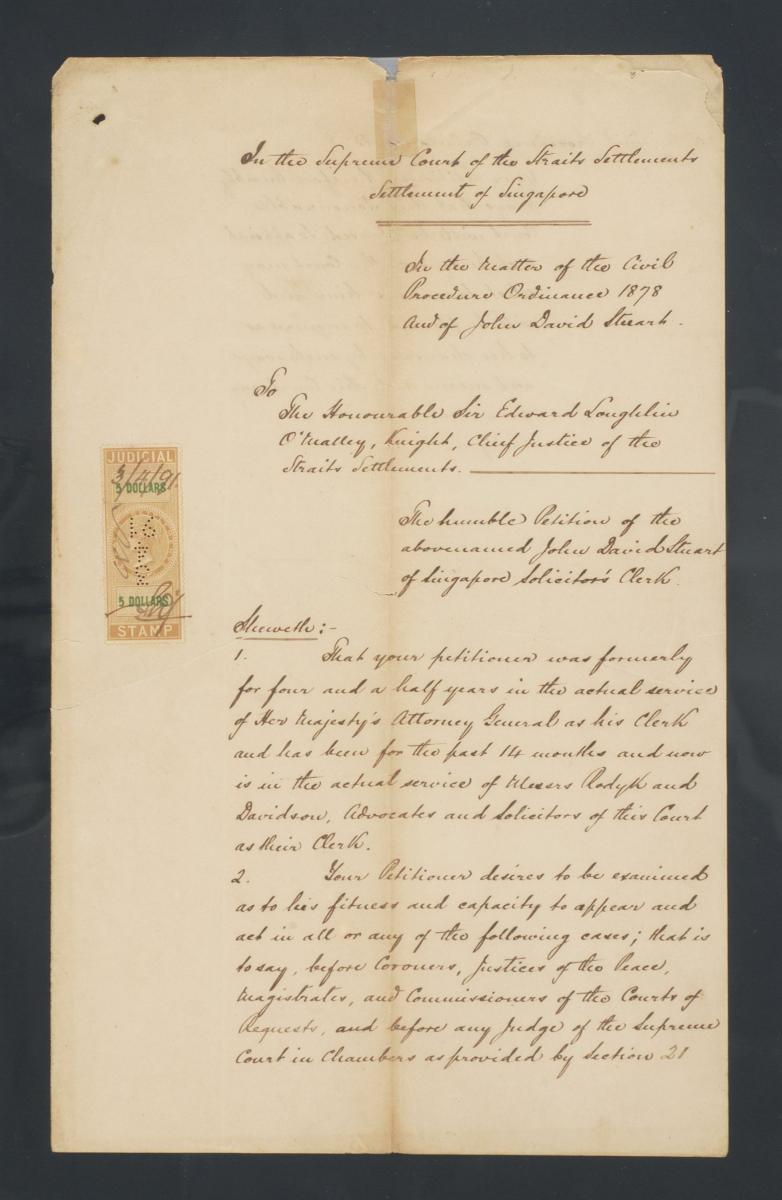 In the Supreme Court of the Straits Settlements
Settlement of Singapore
In the Matter of the Civil
Procedure Ordinance 1878
And of John David Stuart.
To
The Honourable Sir Edward Loughlin
O'Malley, Knight, Chief Justice of the
Straits Settlements.
The humble Petition of the
abovenamed John David Stuart
of Singapore Solicitor's Clerk.
JUDICIAL
3/4/91
5 DOLLARS
5 DOLLARS
STAMP
Sheweth:-
1. That your petitioner was formerly
for four and a half years in the actual service
of Her Majesty's Attorney General as his Clerk
and has been for the past 14 months and now
is in the actual service of Messrs Rodyk and
Davidson, Advocates and Solicitors of this Court
as their Clerk.
2. Your Petitioner desires to be examined
as to his fitness and capacity to appear and
act in all or any of the following cases; that is
to say, before Coroners, Justices of the Peace,
Magistrates, and Commissioners of the Courts of
Requests, and before any Judge of the Supreme
Court in Chambers as provided by Section 21